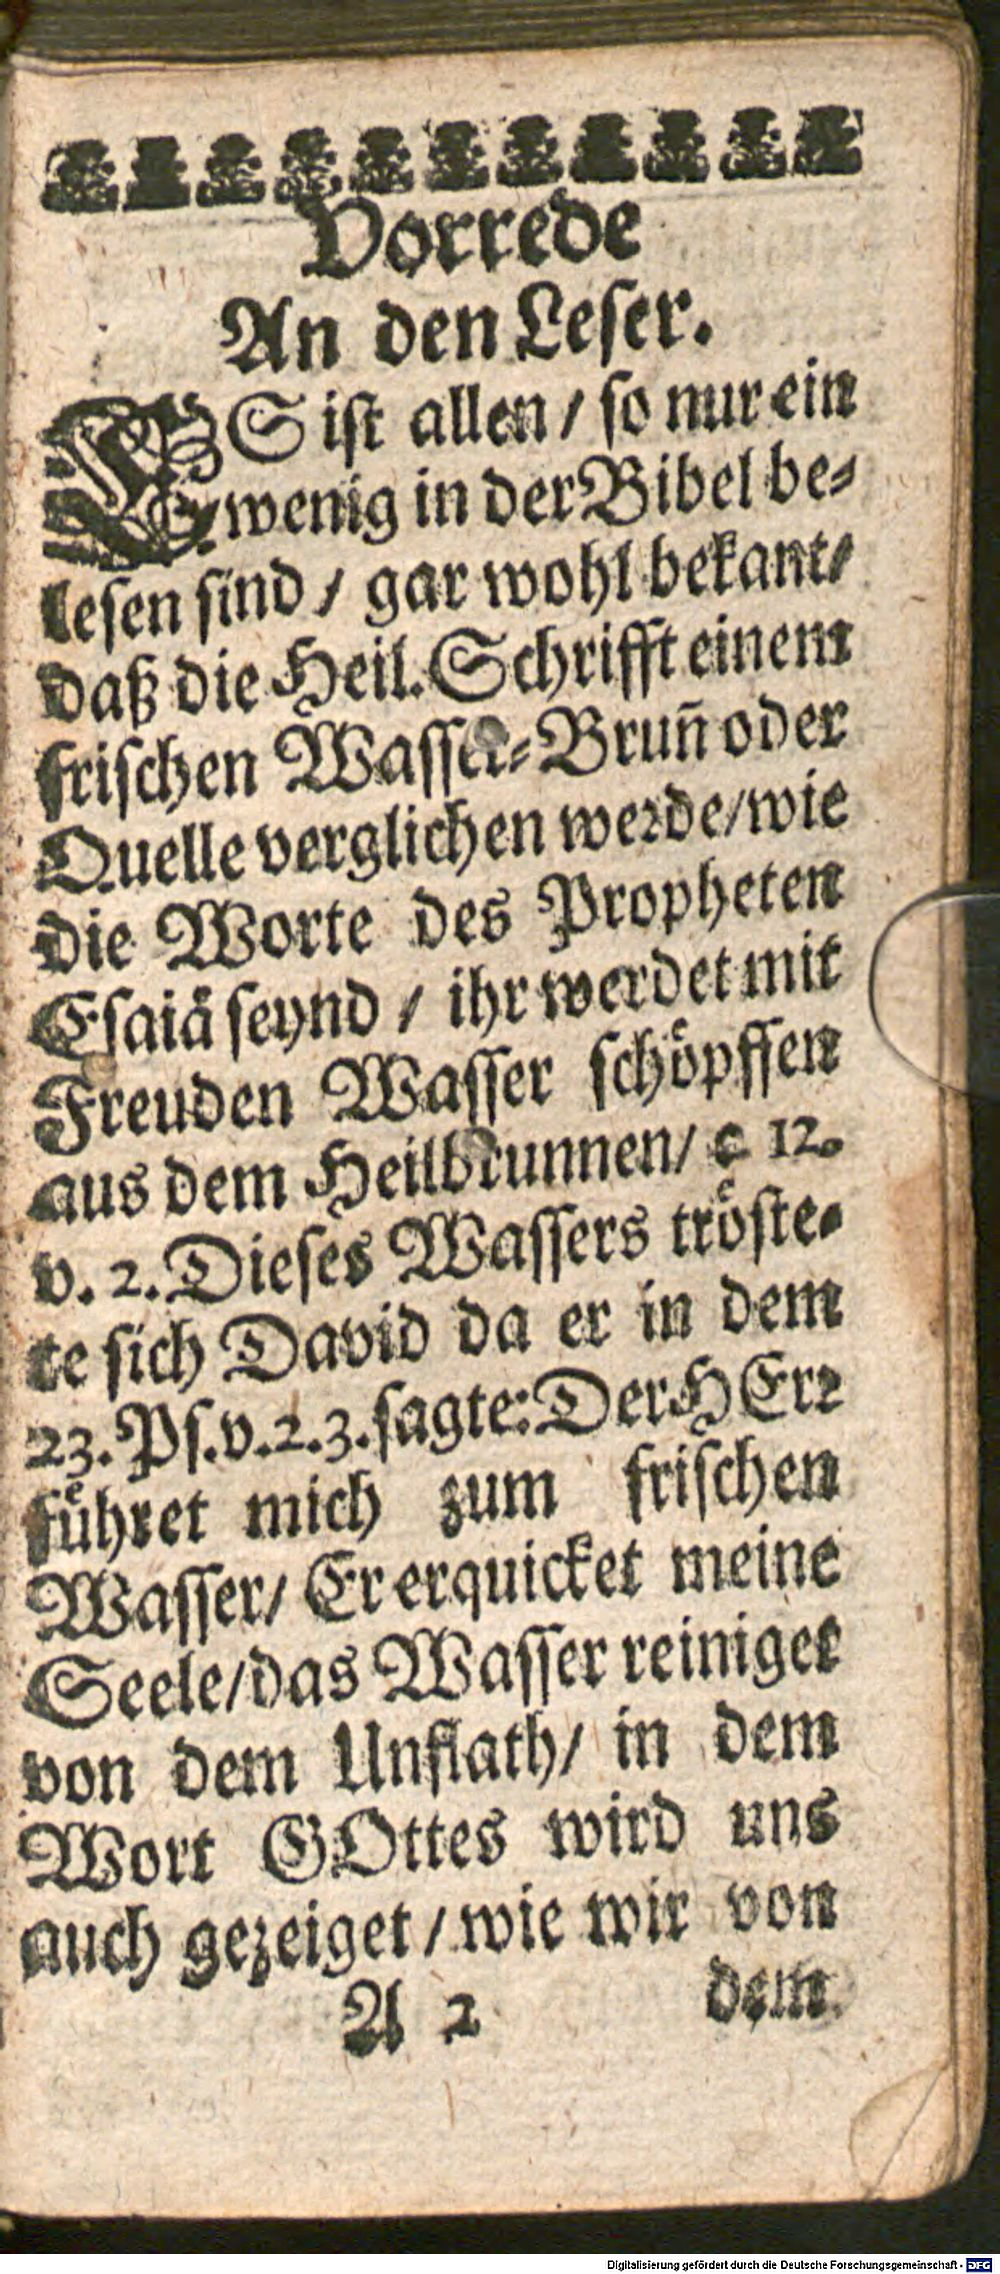 Vorrede
An den Leser.
ES ist allen / so nur ein
wenig in der Bibel be-
lesen sind / gar wohl bekant /
daß die Heil. Schrifft einem
frischen Wasser-Brun̄ oder
Quelle verglichen werde / wie
die Worte des Propheten
Esaiä seynd / ihr werdet mit
Freuden Wasser schöpffen
aus dem Heilbrunnen / c 12.
v. 2. Dieses Wassers tröste-
te sich David da er in dem
23. Ps. v. 2. 3. sagte: Der HErr
führet mich zum frischen
Wasser / Er erquicket meine
Seele / das Wasser reiniget
von dem Unflath / in dem
Wort GOttes wird uns
auch gezeiget / wie wir von
A 2 dem
Digitalisierung gefördert durch die Deutsche Forschungsgemeinschaft - DFG